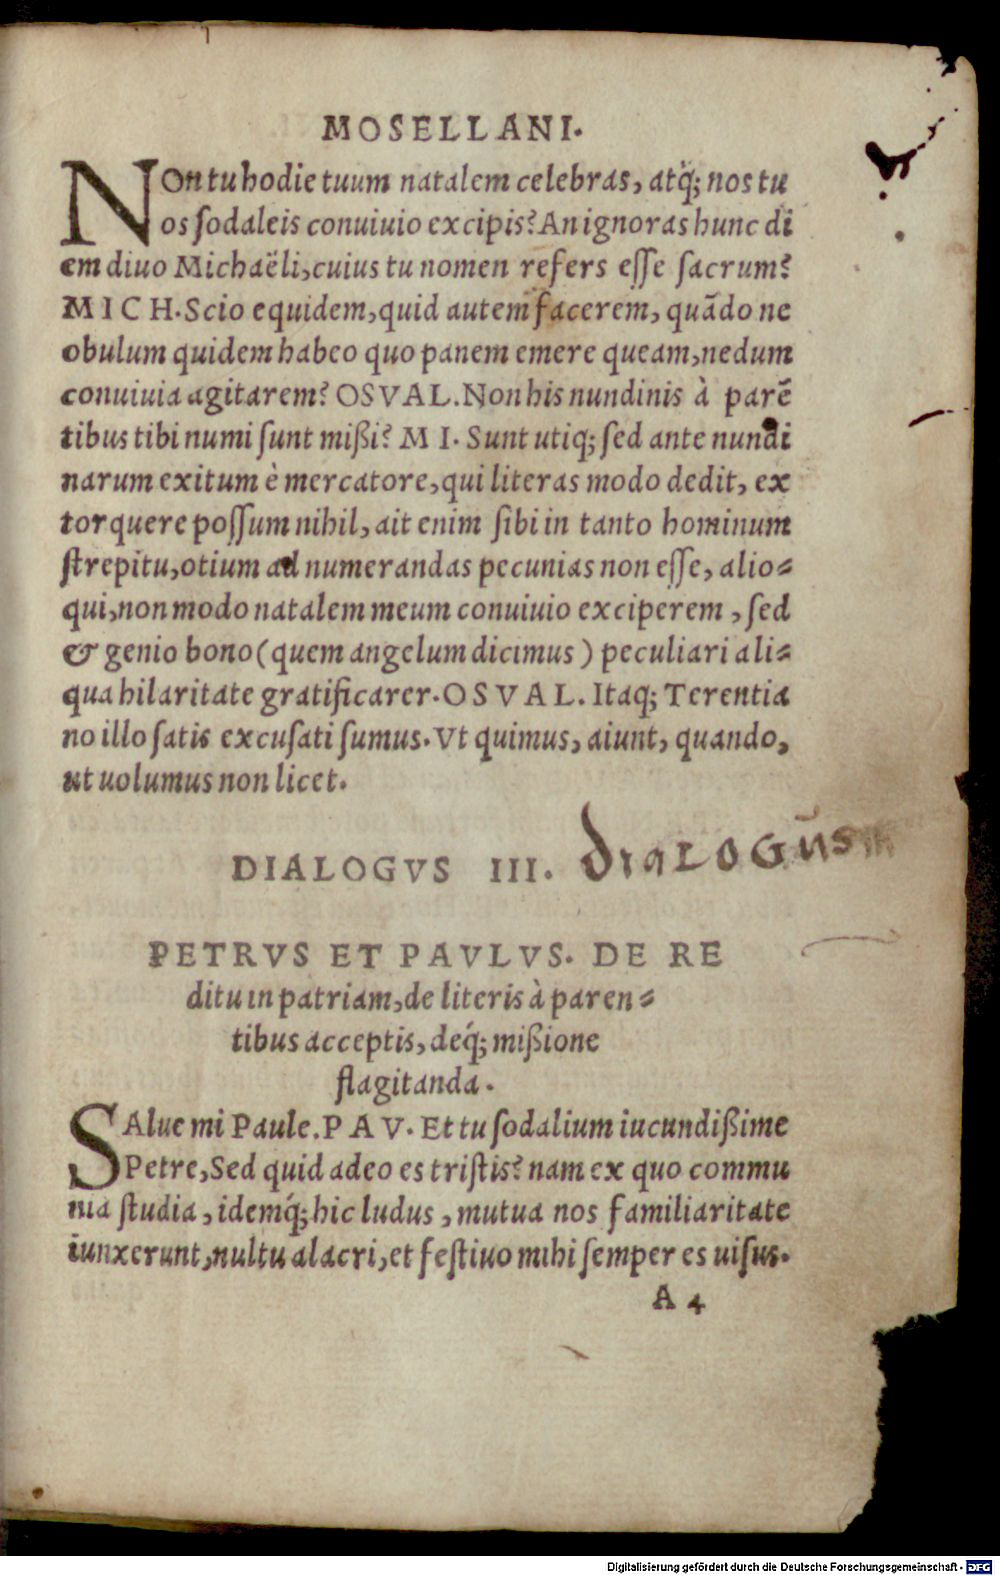 MOSELLANI.
NOn tu hodie tuum natalem celebras, atq́; nos tu
os ſodaleis conuiuio excipis? An ignoras hunc di
em diuo Michaëli, cuius tu nomen refers eſſe ſacrum?
MICH. Scio equidem, quid autem facerem, quãdo ne
obulum quidem habeo quo panem emere queam, nedum
conuiuia agitarem? OSVAL. Non his nundinis à parẽ
tibus tibi numi ſunt mißi? MI. Sunt utiq; ſed ante nundi
narum exitum è mercatore, qui literas modo dedit, ex
torquere poſſum nihil, ait enim ſibi in tanto hominum
ſtrepitu, otium ad numerandas pecunias non eſſe, alio-
qui, non modo natalem meum conuiuio exciperem, ſed
& genio bono (quem angelum dicimus) peculiari ali-
qua hilaritate gratificarer. OSVAL. Itaq; Terentia
no illo ſatis excuſati ſumus. Vt quimus, aiunt, quando,
ut uolumus non licet.
DIALOGVS III. DIALOGus
PETRVS ET PAVLVS. DE RE
ditu in patriam, de literis à paren-
tibus acceptis, deq́; mißione
flagitanda.
SAlue mi Paule. PAV. Et tu ſodalium iucundißime
Petre, Sed quid adeo es triſtis? nam ex quo commu
nia ſtudia, idemq́; hic ludus, mutua nos familiaritate
iunxerunt, uultu alacri, et feſtiuo mihi ſemper es uiſus.
A 4
Digitalisierung gefördert durch die Deutsche Forschungsgemeinschaft - DFG